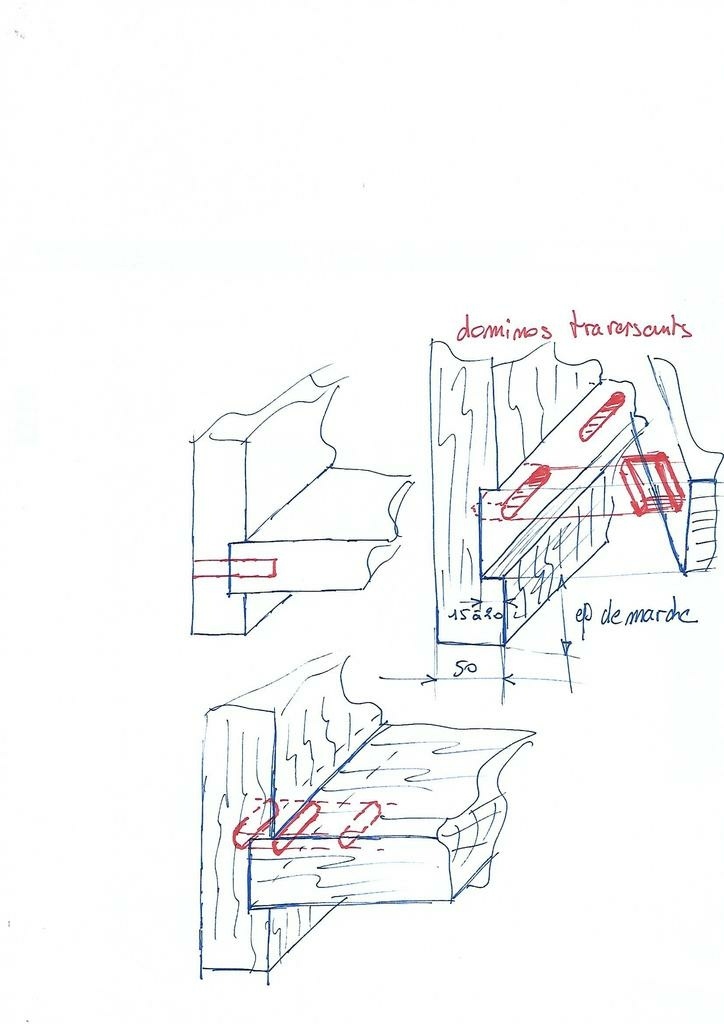 dominos traversants
15 à 20
ep de marche
50